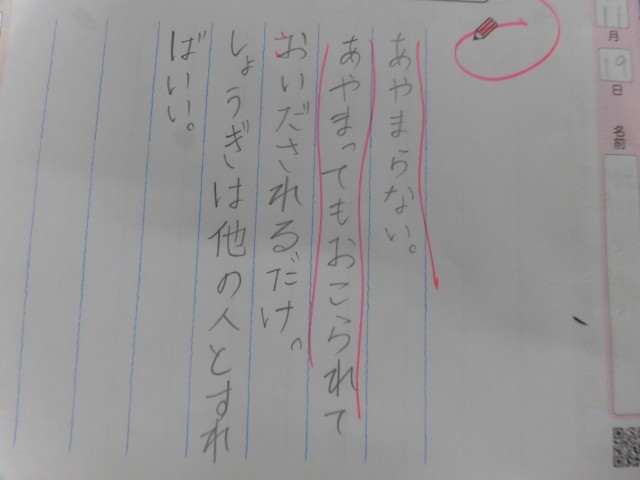 11
月
19
日
名前
あやまらない。
あやまってもおこられて
おいだされるだけ。
しょうぎは他の人とすれ
ばいい。